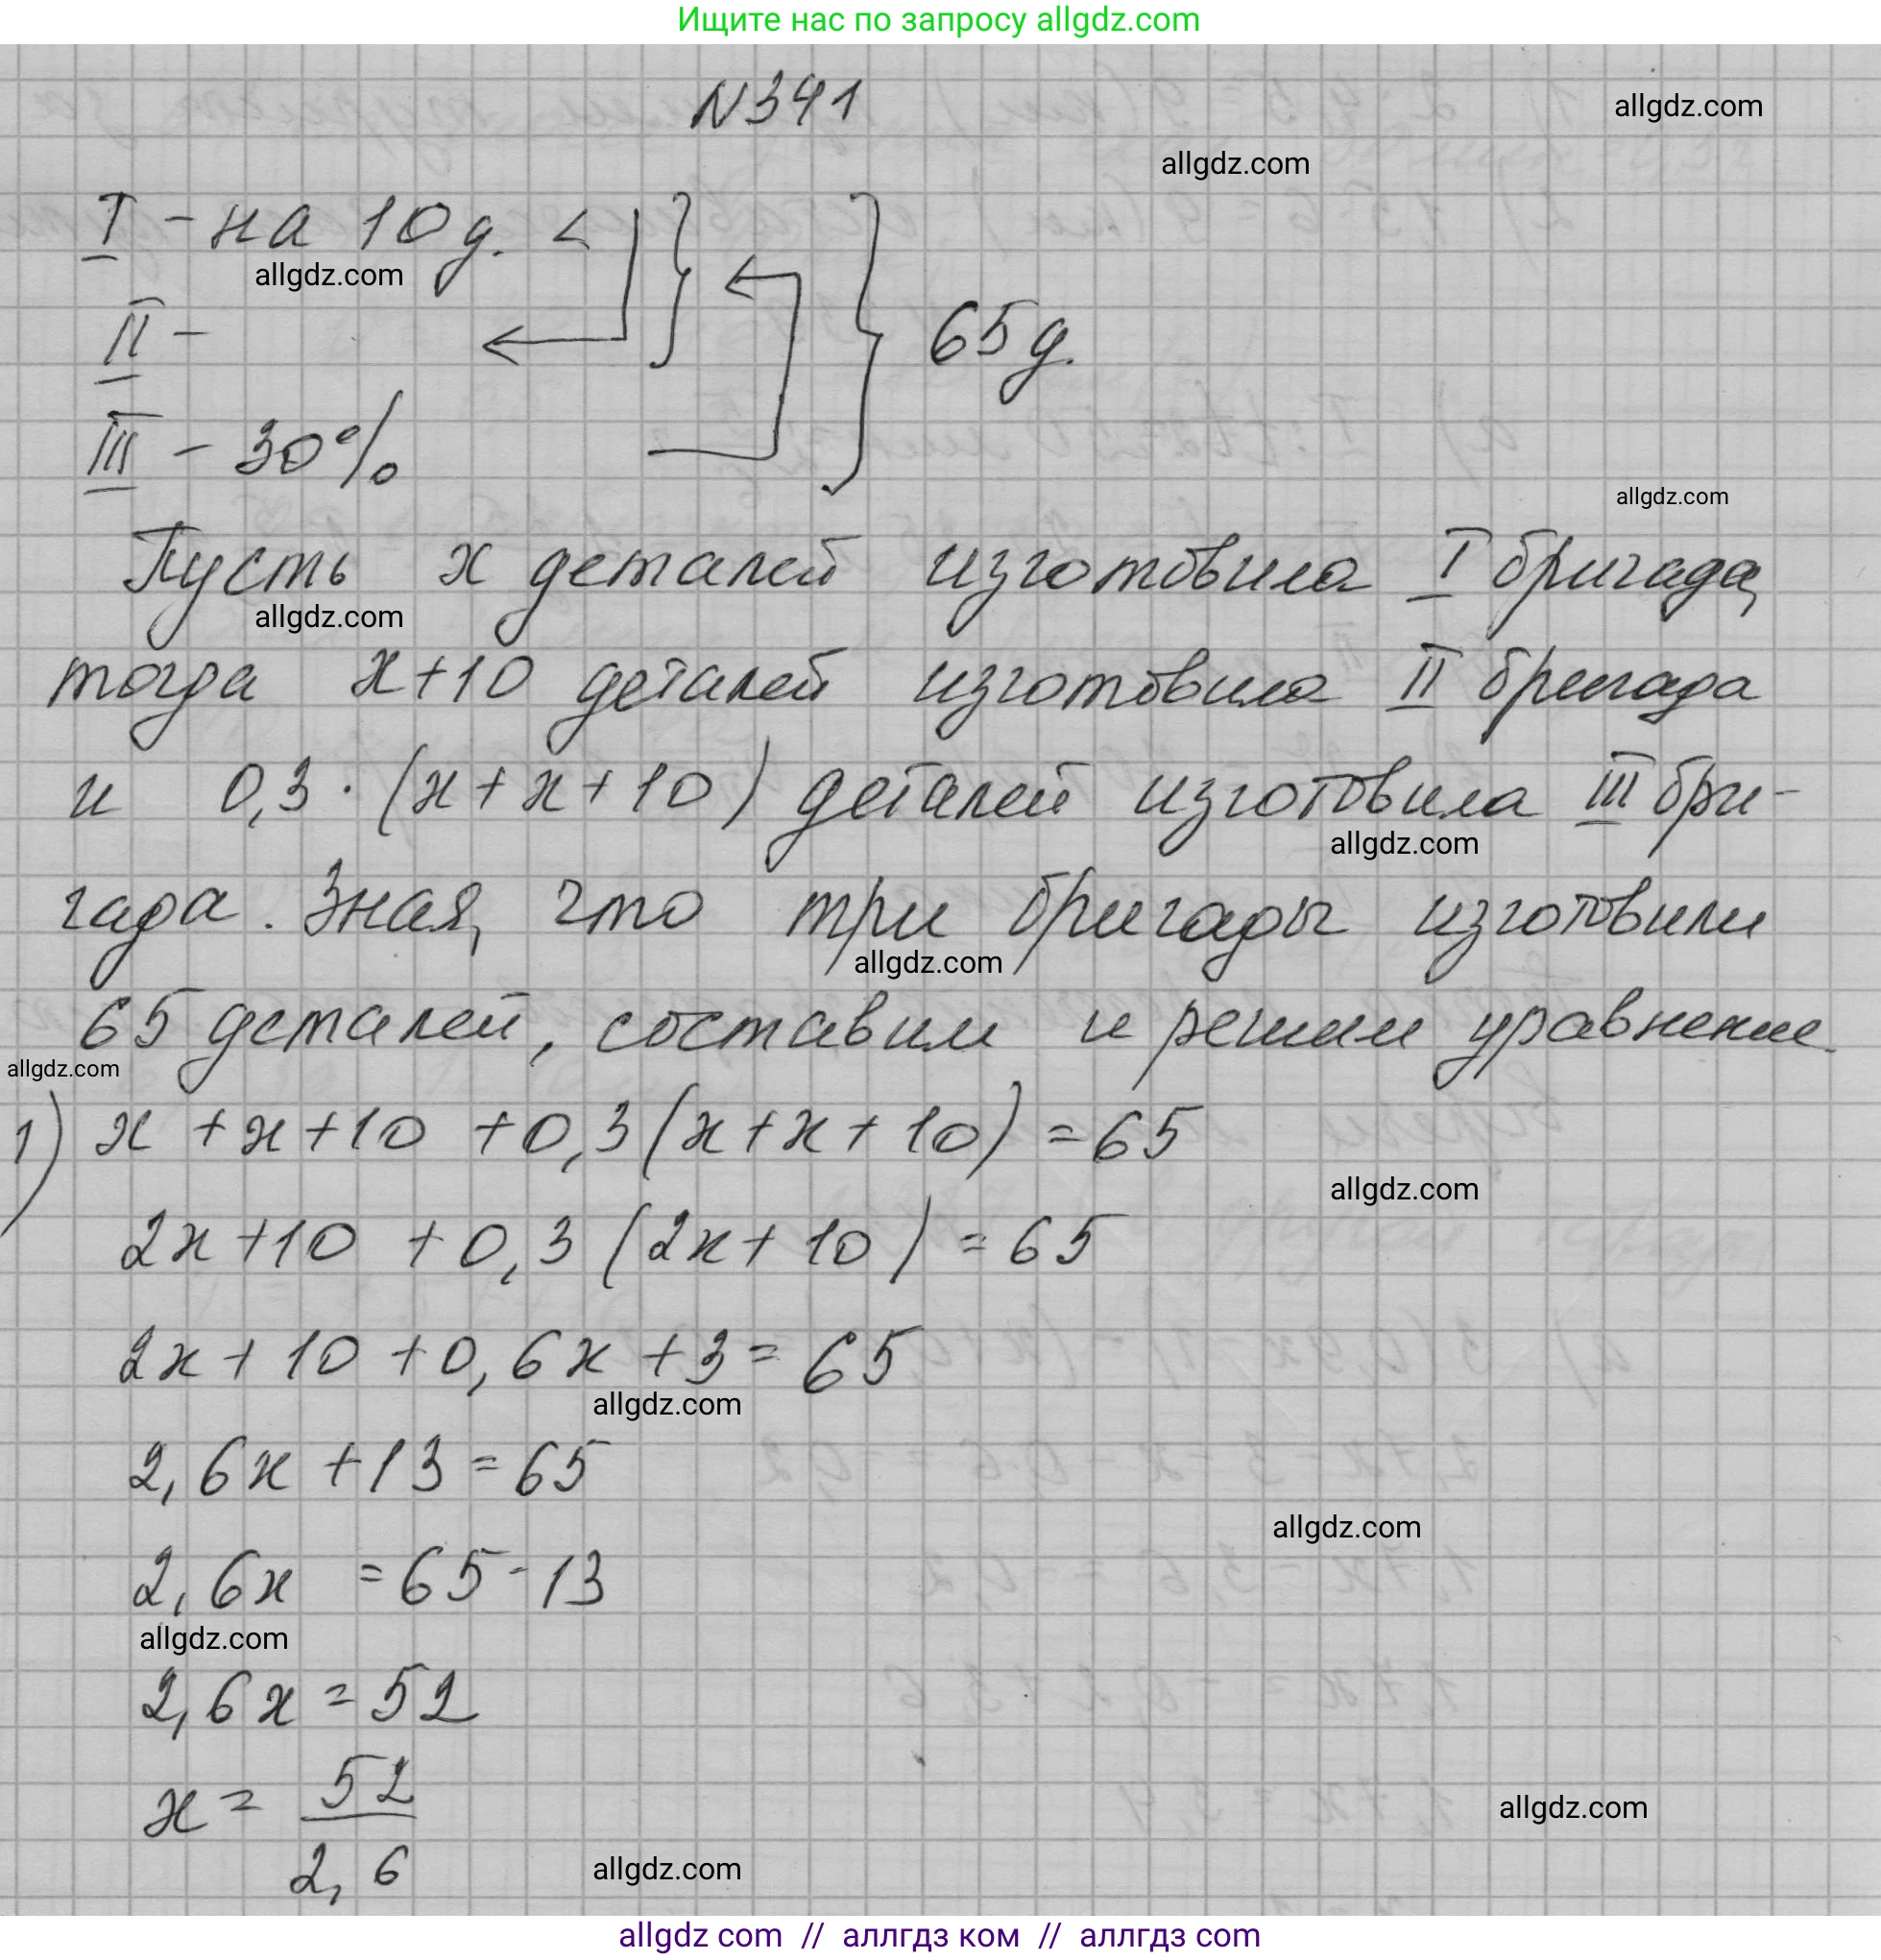 Ищите нас по запросу allgdz.com
N341
allgdz.com
allgdz.com
I - на 10 д. <
allgdz.com
II -
65 д.
III - 30%
allgdz.com
Пусть x деталей изготовила I бригада,
allgdz.com
тогда x+10 деталей изготовила II бригада
и 0,3 · (x+x+10) деталей изготовила III бри-
allgdz.com
гада. Зная, что три бригады изготовили
allgdz.com
65 деталей, составим и решим уравнение.
allgdz.com
1) x+x+10+0,3(x+x+10)=65
allgdz.com
2x+10+0,3(2x+10)=65
2x+10+0,6x+3=65
allgdz.com
2,6x+13=65
allgdz.com
2,6x =65-13
allgdz.com
2,6x=52
x= 52
allgdz.com
2,6
allgdz.com
allgdz com // аллгдз ком // аллгдз com